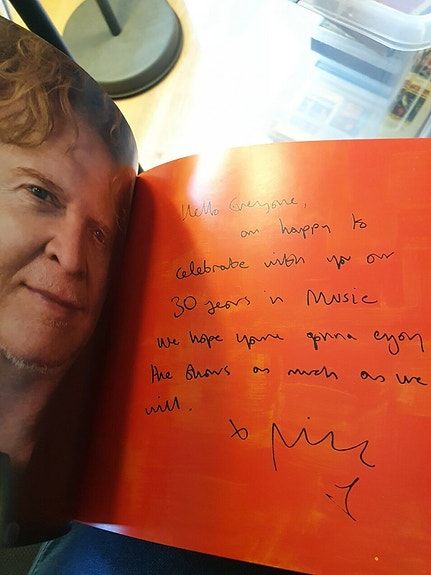 Hello Everyone,
am happy to
celebrate with you our
30 years in Music
We hope you're gonna enjoy
the shows as much as we
will.